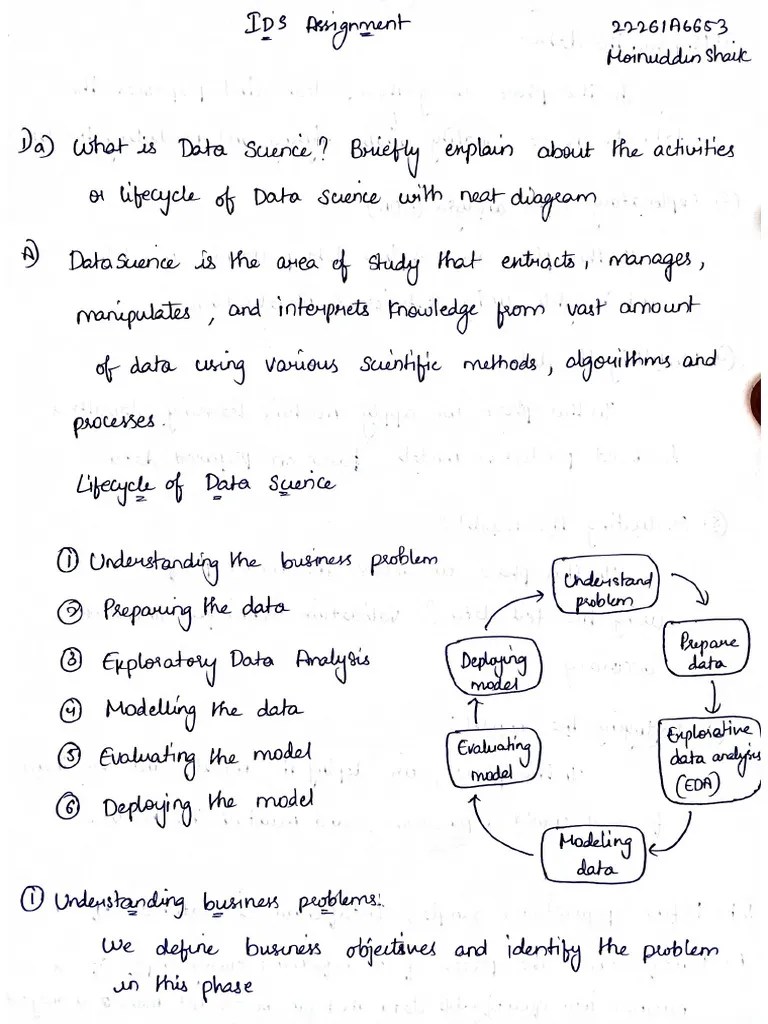 IDS Assignment
22261A6653
Moinuddin Shaik
1) a) What is Data Science? Briefly explain about the activities
or lifecycle of Data Science with neat diagram
A) Data Science is the area of study that extracts, manages,
manipulates, and interprets knowledge from vast amount
of data using various scientific methods, algorithms and
processes.
Lifecycle of Data Science
① Understanding the business problem
② Preparing the data
③ Exploratory Data Analysis
④ Modelling the data
⑤ Evaluating the model
⑥ Deploying the model
Understand
problem
Prepare
data
Explorative
data analysis
(EDA)
Modeling
data
Evaluating
model
Deploying
model
① Understanding business problems:
We define business objectives and identify the problem
in this phase